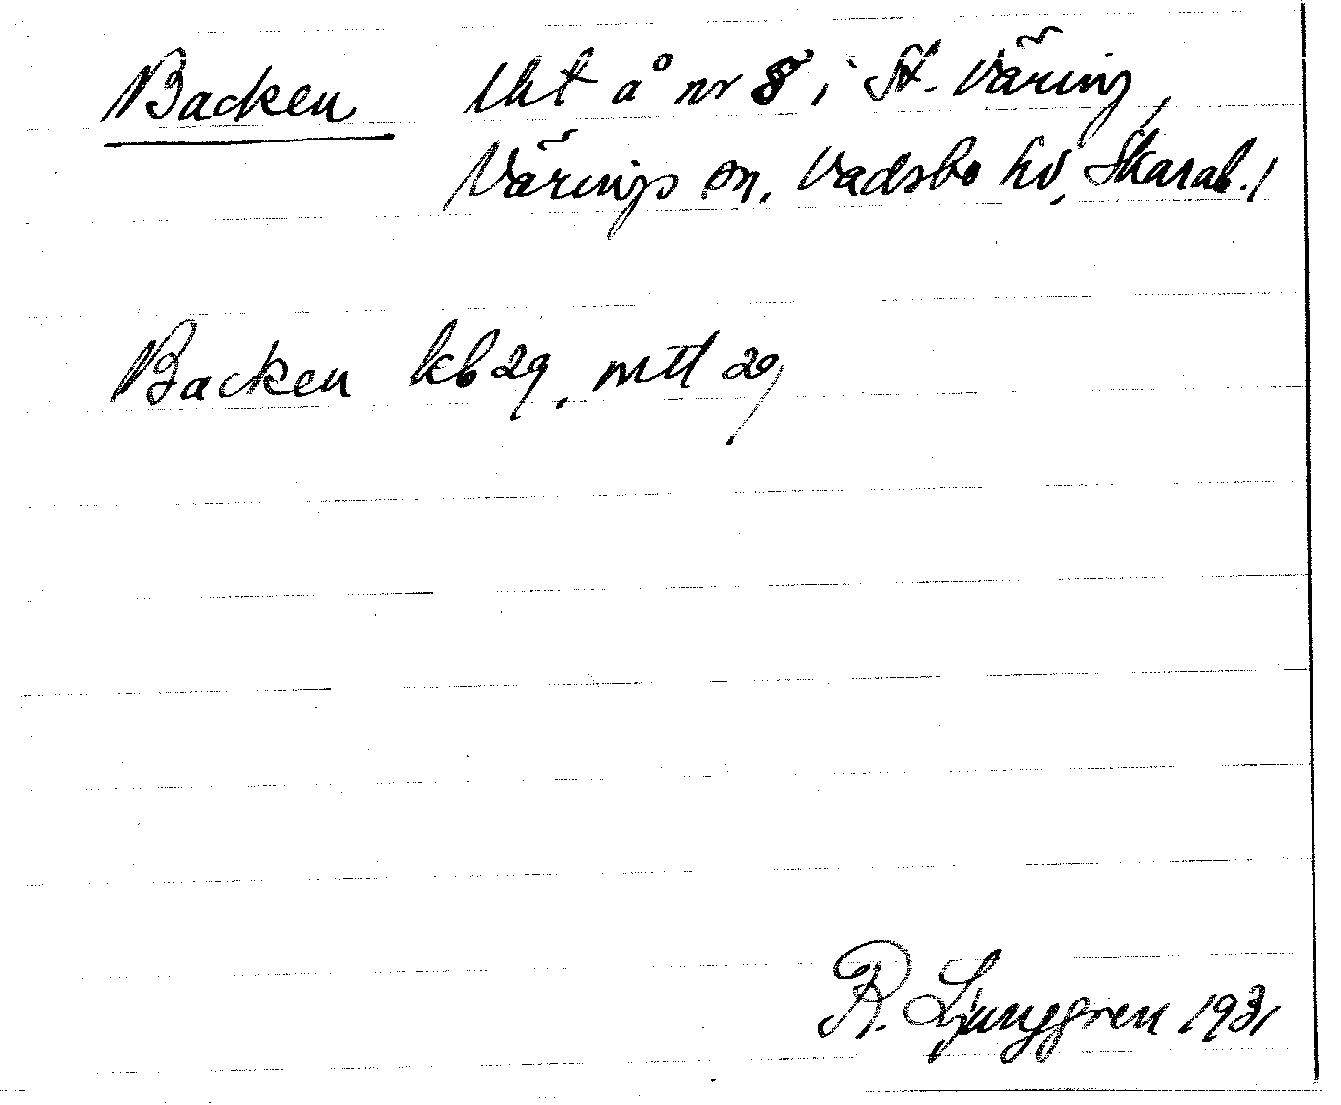 Backen lht å nr 8 i St. Väring,
Värings sn. Vadsbo hd, Skarab. l
Backen kb 29, mtl 29
R. Ljunggren 1931